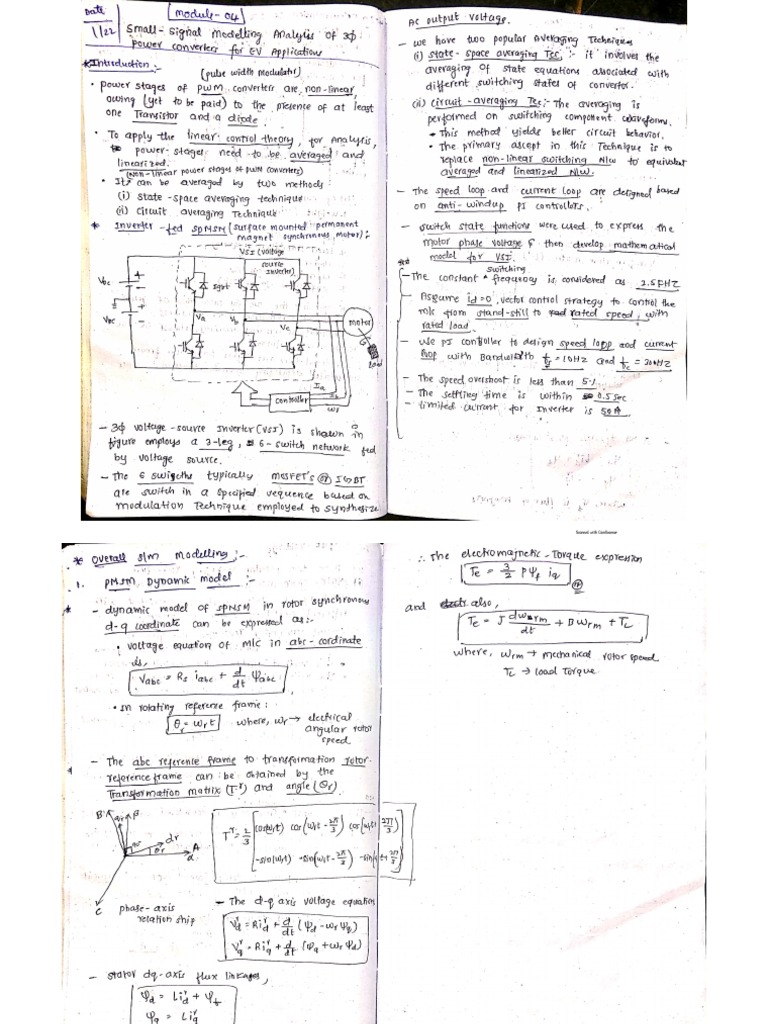 Date
1/22
Module-04
Small-Signal Modelling Analysis of 3ϕ
power converters for EV Application
* Introduction :-
(pulse width modulator)
• Power stages of PWM converters are non-linear,
owing (yet to be paid) to the presence of at least
one Transistor and a diode.
• To apply the linear control theory, for analysis,
power-stages need to be averaged and
linearized.
(Non-linear power stages of PWM converters)
• It can be averaged by two methods
(i) State-space averaging technique
(ii) Circuit averaging Technique
* Inverter-fed SPMSM (surface mounted permanent
magnet synchronous motor):-
VSI (voltage
source
Inverter)
VDC
VDC
IGBT
Va
Vb
Vc
motor
load
Ia
controller
- 3ϕ voltage-source Inverter (VSI) is shown in
figure employs a 3-leg, 6-switch network fed
by voltage source.
- The 6 swicths typically MOSFET's or IGBT
are switch in a specified sequence based on
modulation Technique employed to synthesize
AC output voltage.
- we have two popular Averaging Techniques
(i) State-space averaging Tec :- it involves the
averaging of state equations associated with
different switching states of converter.
(ii) Circuit-averaging Tec: The averaging is
performed on switching component waveforms.
• This method yields better circuit behavior.
• The primary ascept in this Technique is to
replace non-linear switching N/w to equivalent
averaged and linearized N/w.
- The speed loop and current loop are designed based
on anti-windup PI controllers.
- switch state functions were used to express the
motor phase voltage & then develop mathematical
model for VSI.
switching
- The constant ^ frequency is considered as 2.5KHZ
- Assume id=0, vector control strategy to control the
m/c from stand-still to rated speed, with
rated load.
- We PI controller to design speed loop and current
loop with Bandwidth = 10HZ and = 300HZ
- The speed overshoot is less than 5%
- The settling time is within 0.5sec
- limited current for inverter is 50A
* Overall s/m Modelling :-
1. PMSM Dynamic model :-
- dynamic model of SPMSM in rotor synchronous
d-q coordinate can be expressed as:-
• voltage equation of m/c in abc-cordinate
is,
Vabc = Rs iabc + d/dt Ψabc
• In rotating reference frame:
θr = ωrt where, ωr → electrical
angular rotor
speed
- The abc reference frame to transformation rotor
reference frame can be obtained by the
Transformation matrix (T^r) and angle (θr).
B
β
dr
A
θr
d
C
phase-axis
relation ship
T^r = 2/3 [cos(ωrt) cos(ωrt - 2π/3) cos(ωrt + 2π/3)
-sin(ωrt) -sin(ωrt - 2π/3) -sin(ωrt + 2π/3)]
- The d-q axis voltage equation
V^r_d = Ri^r_d + d/dt (Ψd - ωrΨq)
V^r_q = Ri^r_q + d/dt (Ψq + ωrΨd)
- stator dq-axis flux linkages,
Ψd = Li^r_d + Ψf
Ψq = Li^r_q
∴ The electromagnetic-Torque expression
Te = 3/2 PΨf iq
and also,
Te = J dωrm/dt + Bωrm + TL
where, ωrm → mechanical rotor speed
TL → load Torque
Scanned with CamScanner